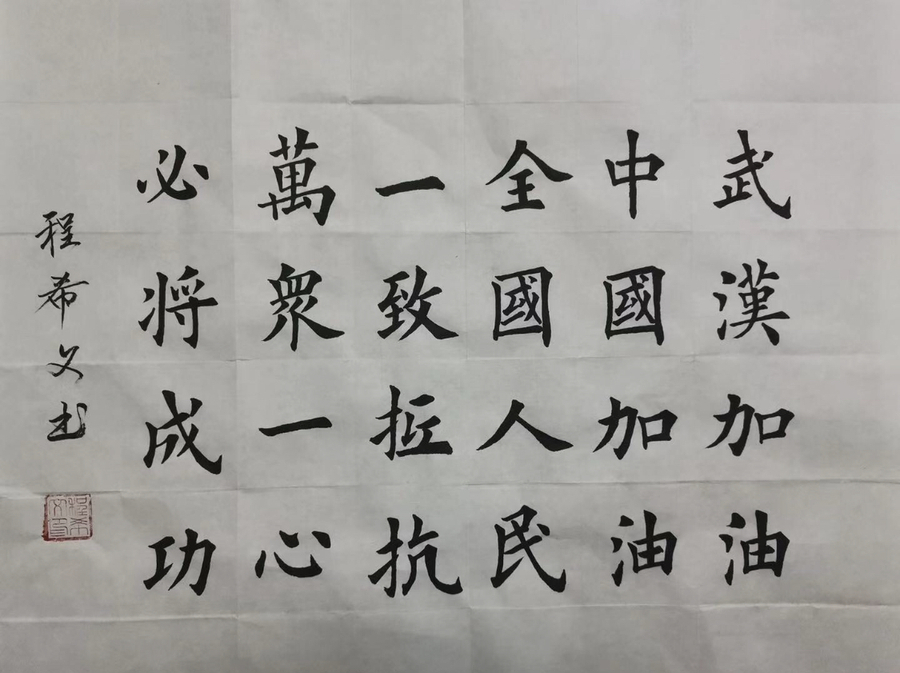 武漢加油
中國加油
全國人民
一致抗
萬衆一心
必将成功
程希文书
程希文印